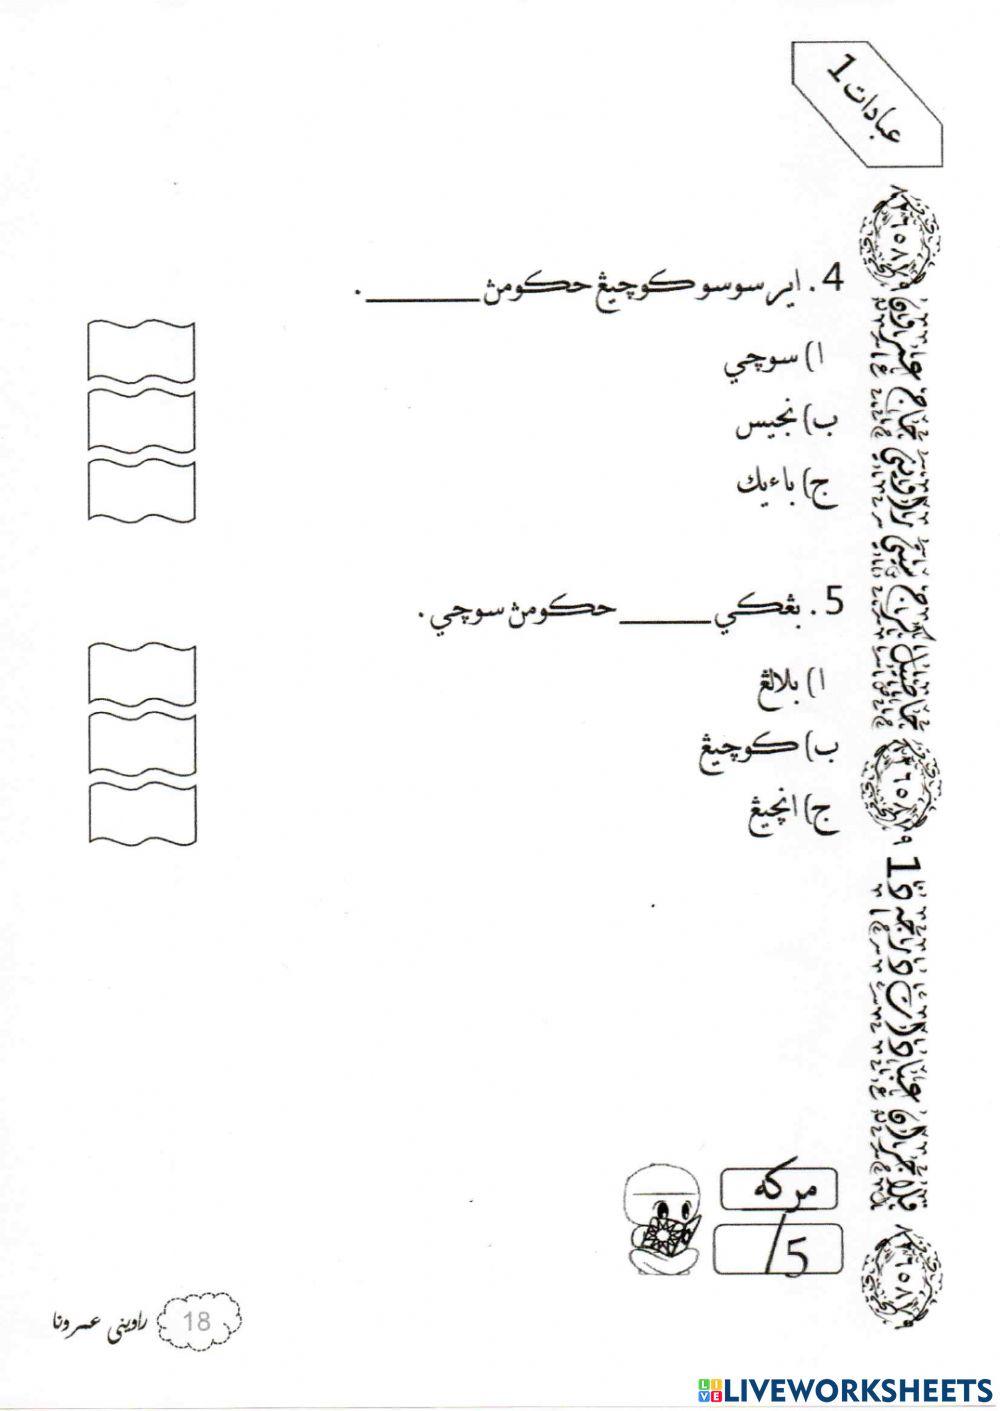 عبادات 1
4. اير سوسو كوچيڠ حكومڽ ________ .
ا) سوچي
ب) نجيس
ج) باءيك
5. بڠكي ______ حكومڽ سوچي .
ا) بلالڠ
ب) كوچيڠ
ج) انچيڠ
مركه
/5
18
راويني عمرونا
LIVEWORKSHEETS